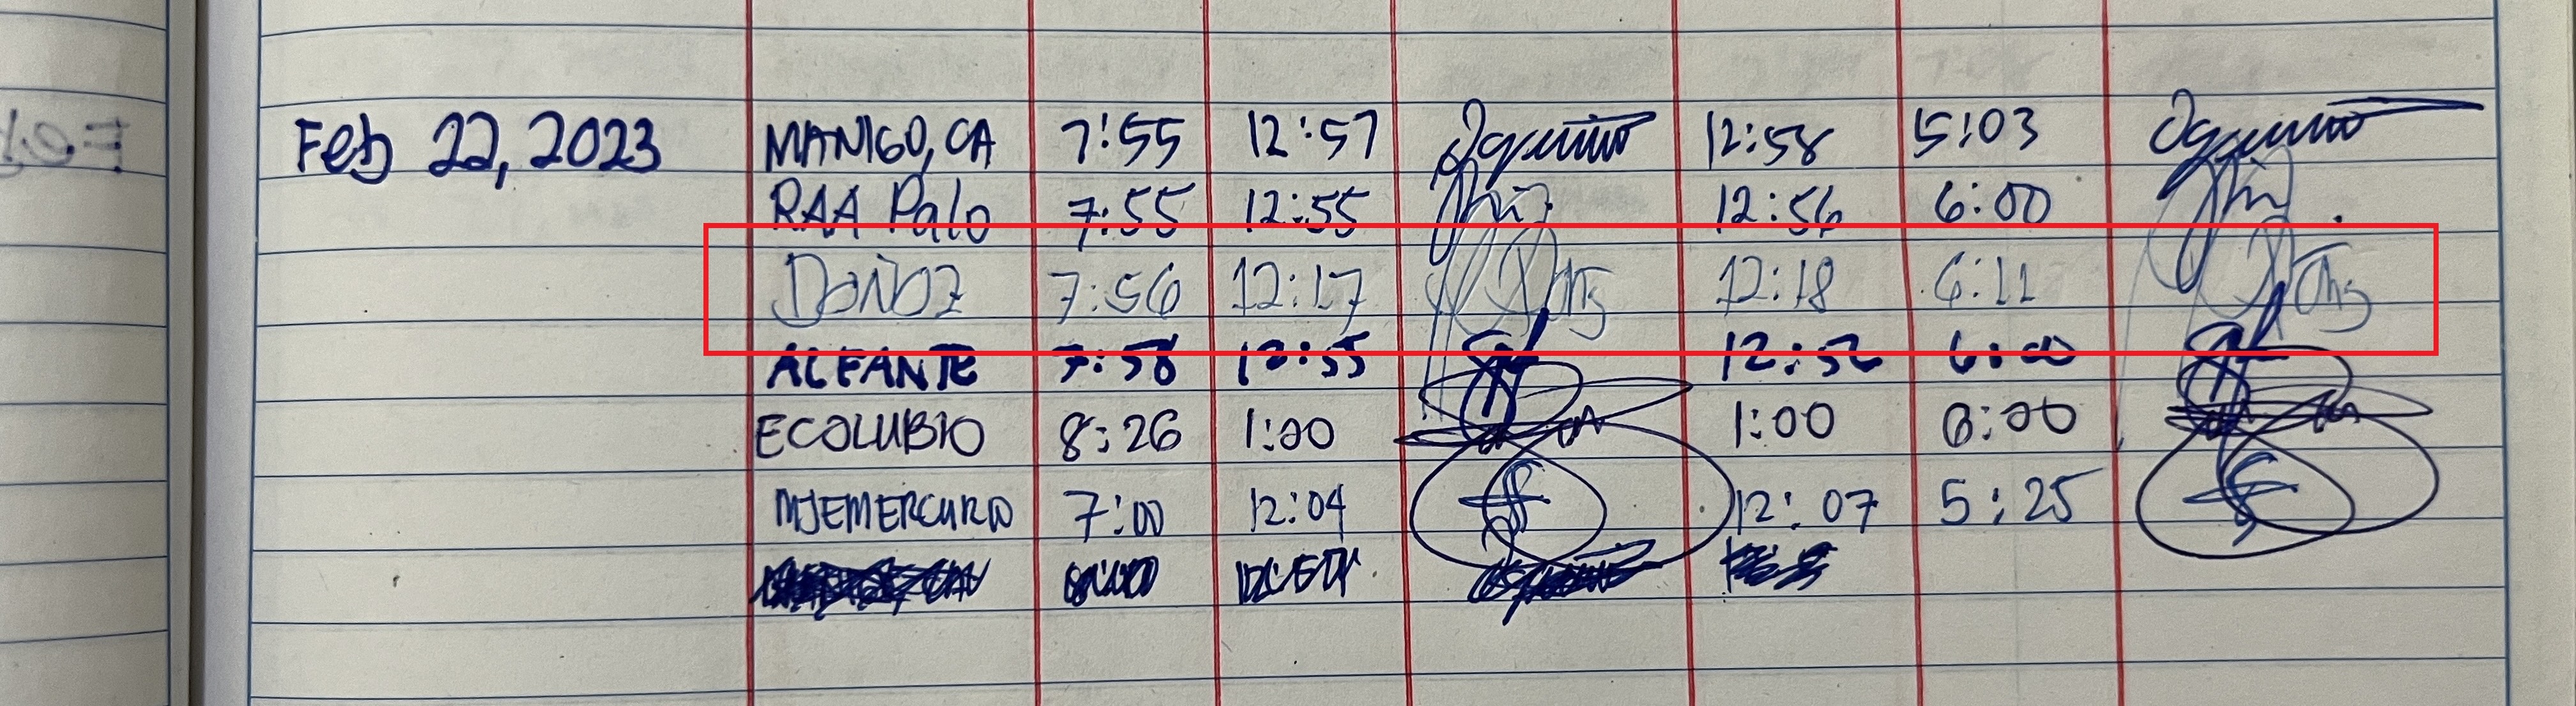 Feb 22, 2023 MANIGO, CA 7:55 12:57 12:58 5:03
RAA Palo 7:55 12:55 12:56 6:00
DOÑOZ 7:56 12:17 12:18 6:11
ALFANTE 7:58 12:55 12:56 6:00
ECOLUBIO 8:26 1:00 1:00 6:00
MJEMERCURIO 7:00 12:04 12:07 5:25